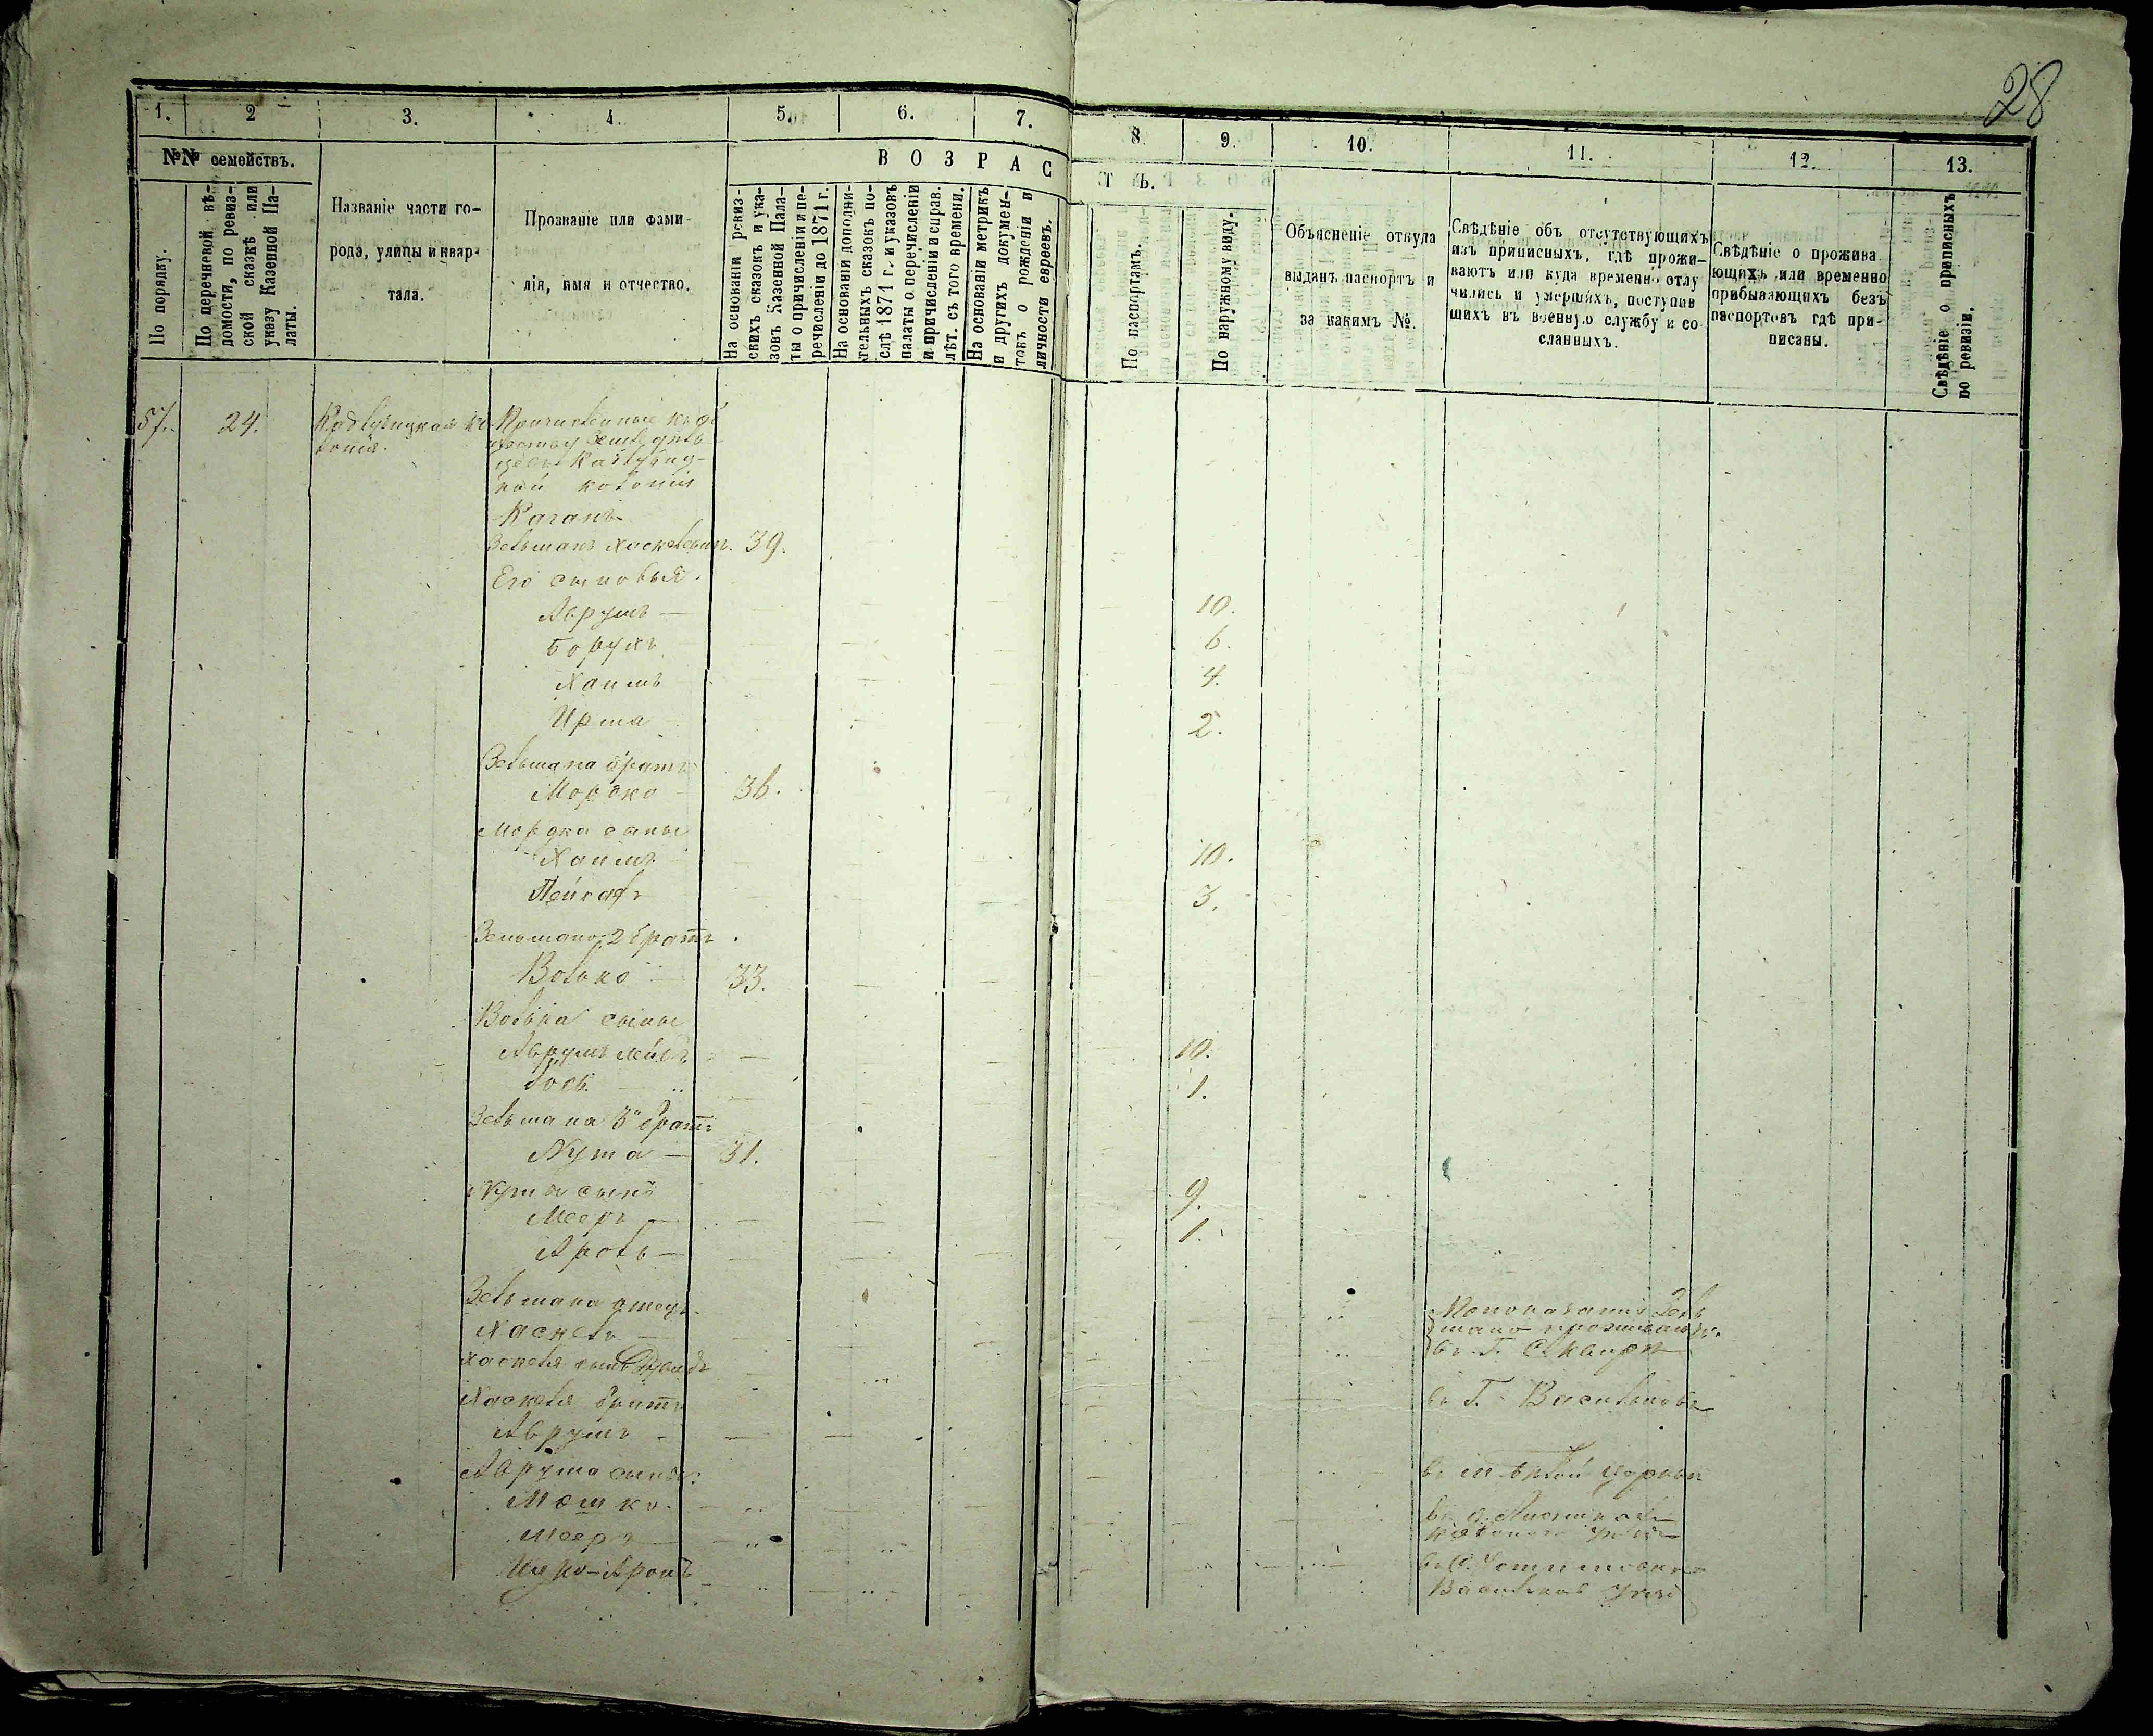 28
1. 2 3. 4. 5. 6. 7. 8 9. 10. 11. 12. 13.
№№ семействъ.
По порядку.
По перечневой вѣ-
домости, по ревиз-
ской сказкѣ или
указу Казенной Па-
латы.
Названіе части го-
рода, улицы и квар-
тала.
Прозваніе или фами-
лія, имя и отчество.
В О З Р А С Т Ъ.
На основаніи ревиз-
скихъ сказокъ и ука-
зовъ Казенной Пала-
ты о причисленіи и пе-
речисленіи до 1871 г.
На основаніи дополни-
тельныхъ сказокъ по-
слѣ 1871 г. и указовъ
палаты о перечисленіи
и причисленіи и справ.
лѣт. съ того времени.
На основаніи метрикъ
и другихъ докумен-
товъ о рожденіи и
личности евреевъ.
По паспортамъ.
По наружному виду.
Объясненіе откуда
выданъ паспортъ и
за какимъ №.
Свѣдѣніе объ отсутствующихъ
изъ приписныхъ, гдѣ прожи-
ваютъ или куда временно отлу
чились и умершихъ, поступив
шихъ въ военную службу и со
сланныхъ.
Свѣдѣніе о прожива
ющихъ или временно
прибывающихъ безъ
паспортовъ гдѣ при-
писаны.
Свѣдѣніе о приписныхъ
по ревизіи.
57. 24. Кадлубицкая ко-
лонія.
Причисленные къ об
ществу
Кадлубиц-
кой колоніи
Каганъ
Зельманъ Хаскелевичъ. 39.
Его сыновья.
Аврумъ — 10.
Борухъ 6.
Хаимъ 4.
Ирша — 2.
Зельмана братъ
Мордко 36.
Мордка сыны
Хаимъ 10.
Пейсахъ 3.
Зельмана 2 братъ
Волько — 33.
Волька сыны
Аврумъ 10.
Іось. 1.
Зельмана 3й братъ
Нута — 31.
Нуты сынъ
Мееръ — 9.
Аронъ — 1.
Зельмана отецъ.
Хаскель — По показанію Зель
мана проживаютъ.
Хаскеля сынъ въ г. Сквирѣ
Хаскеля братъ въ г. Васильковѣ
Аврумъ —
Аврума сыны: въ м. Бѣлой Церкви
Мошко.
Мееръ
Шеко-Аронъ
Васильков уѣзд